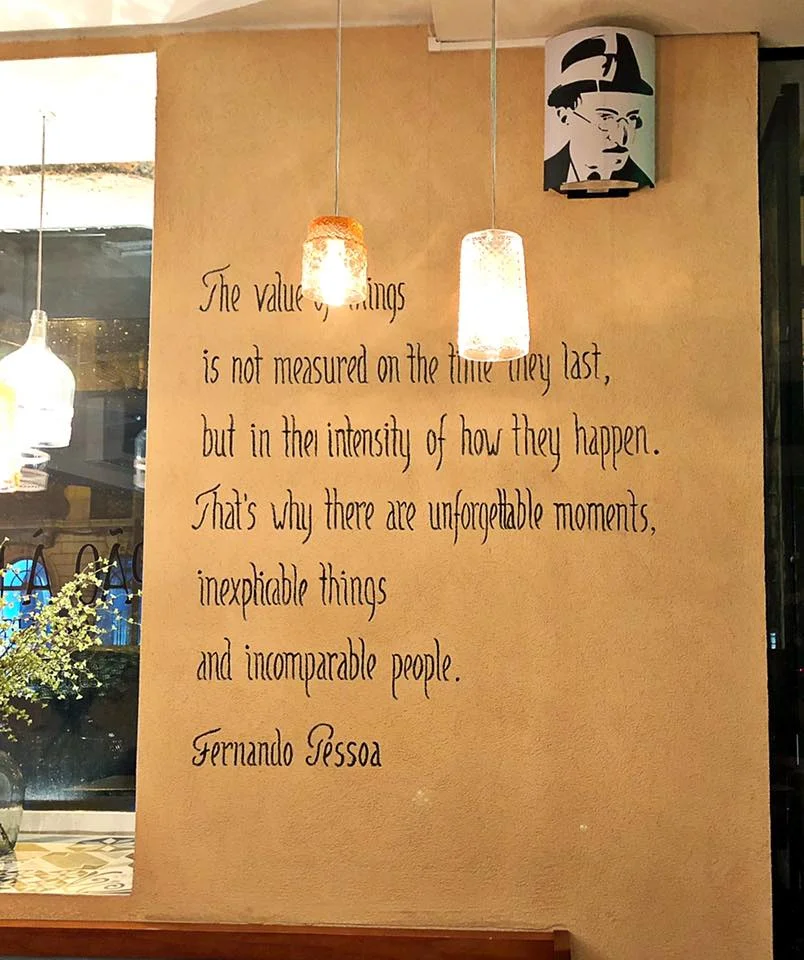 The value of things
is not measured on the time they last,
but in the intensity of how they happen.
That's why there are unforgettable moments,
inexplicable things
and incomparable people.
Fernando Pessoa